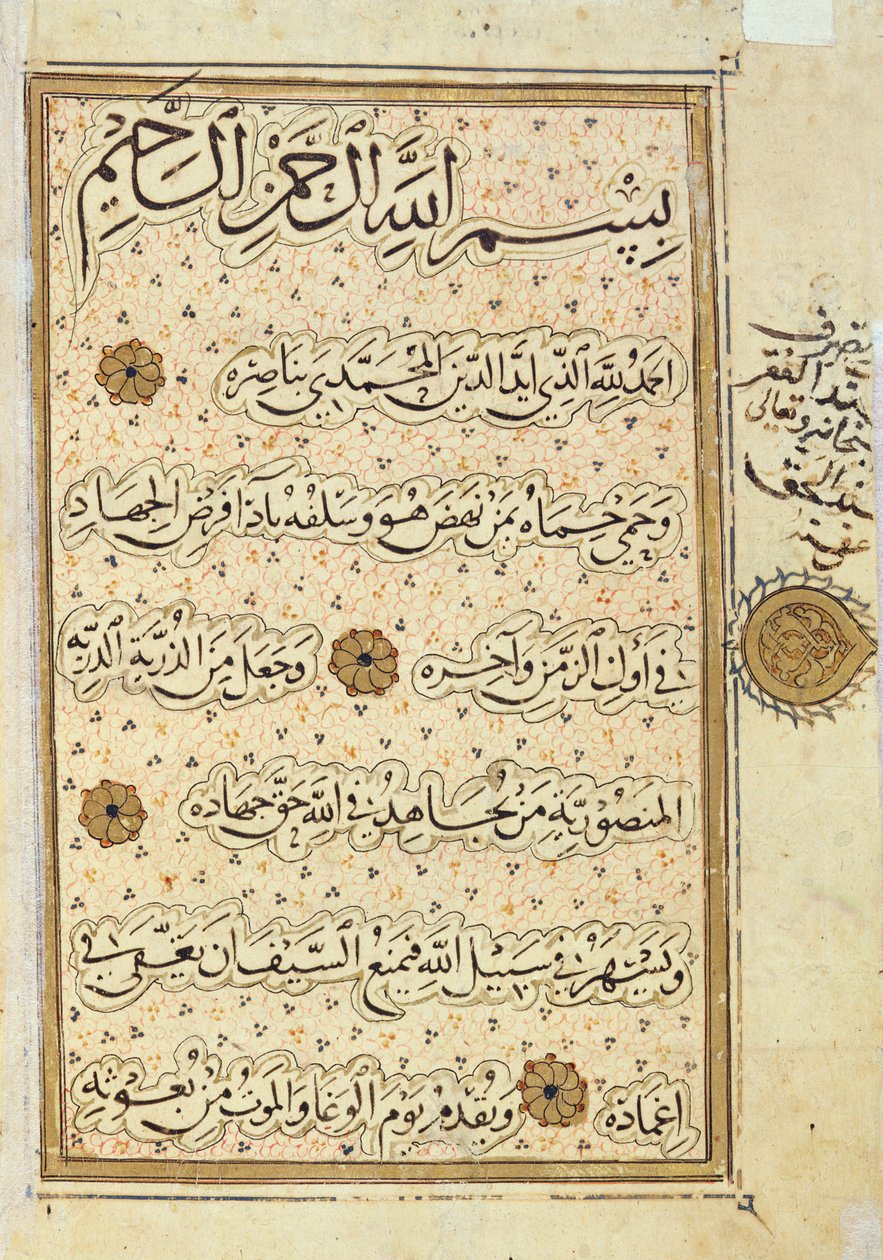 بِسْمِ اللَّهِ الرَّحْمَنِ الرَّحِيمِ
احمدُ لِلَّهِ الَّذِي ايَّدَ الدِّينَ المُحَمَّدِي بِنَاصِرِه
وَحَمَى حِمَاهُ بِمَنْ نَهَضَ هُوَ وَسَلَفُهُ بِادَآ فَرْضِ الجِهَادِ
فِي أَوَلِ الزَّمَنِ وَآخِرِه وَجَعَلَ مِنَ الذُرِّيَةِ الدِرِيَّه
المَنصُورِيَّةِ مَنْ يُجَاهِدُ فِي اللَّهِ حَقَّ جِهَادِه
وَيَسْهَرُ فِي سَبِيلِ اللَّهِ فَيَمنَعُ السَّيْفَ انْ يَغْفَى فِي
اِغمَادِه وَيُقْدِمُ يَوْمَ الوَغَا وَالمَوتُ مِنْ بُعُوثِهِ
الفقر
وتعالى
الحق